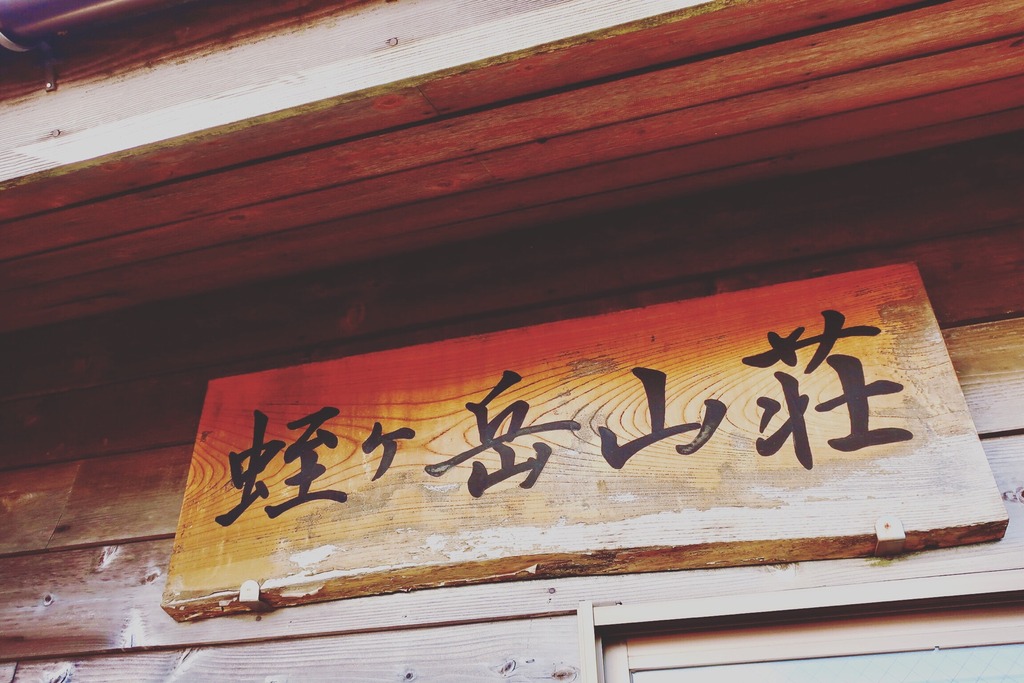 蛭ヶ岳山荘